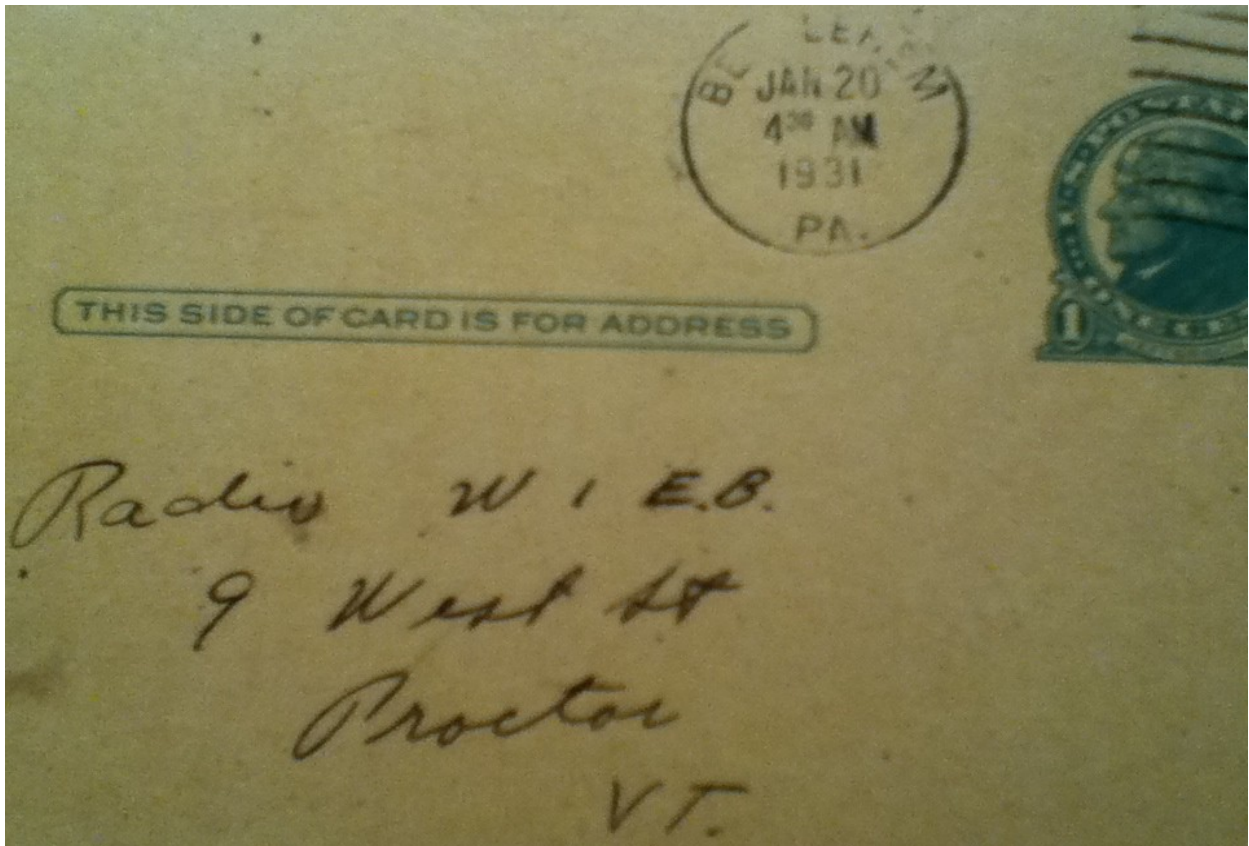 JAN 20
4 30 AM
1931
PA.
THIS SIDE OF CARD IS FOR ADDRESS
1
Radio W 1 E.B.
9 West St
Proctor
VT.